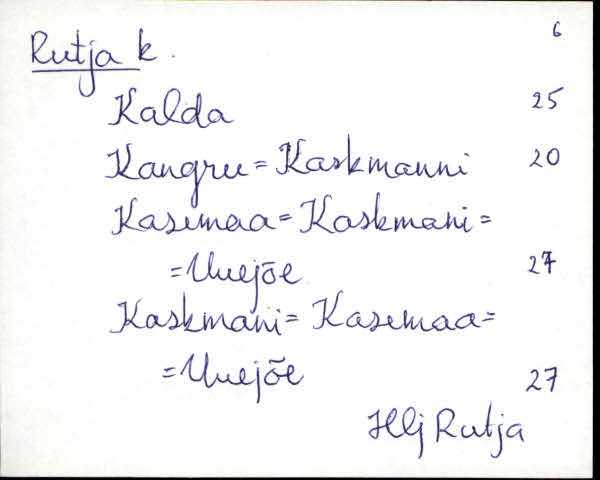 6
Rutja k.
Kalda 25
Kangru = Kaskmanni 20
Kasemaa = Kaskmani =
= Uuejõe 27
Kaskmani = Kasemaa =
= Uuejõe 27
Hlj Rutja